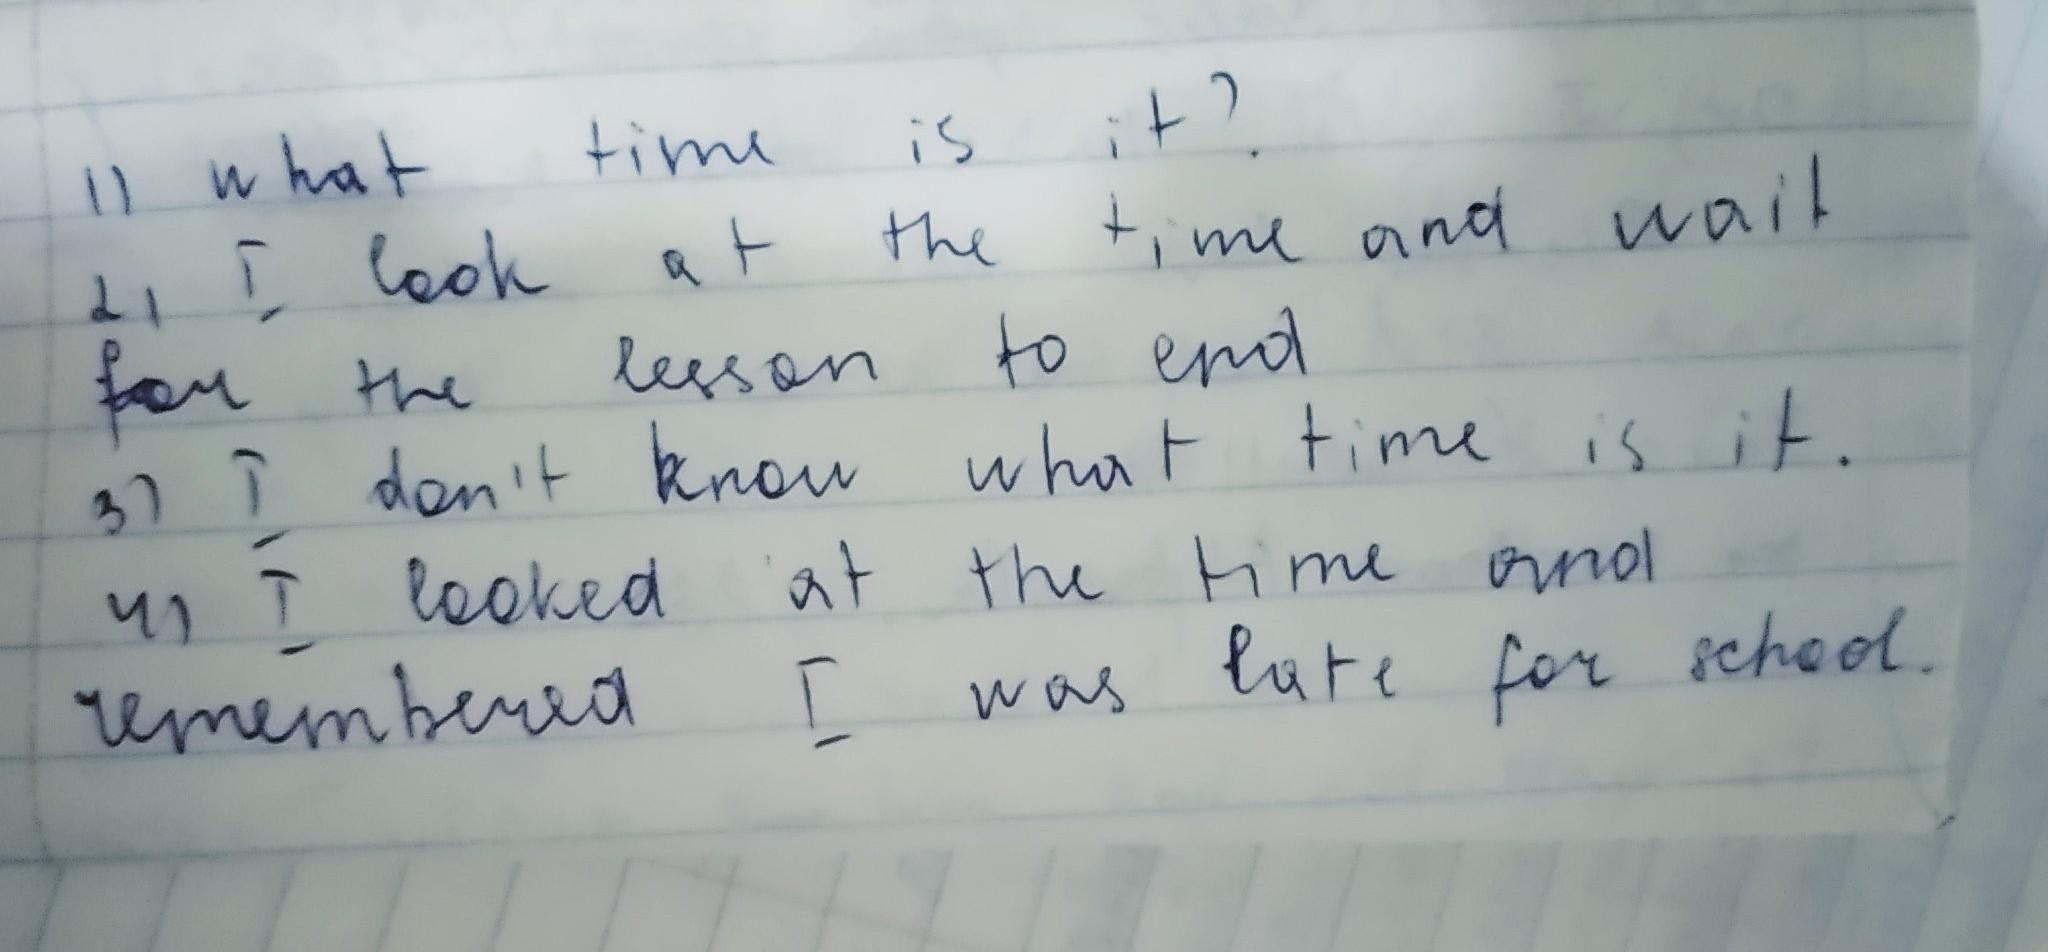 1) what time is it?
2) I look at the time and wait
for the lesson to end
3) I don't know what time is it.
4) I looked at the time and
remembered I was late for school.